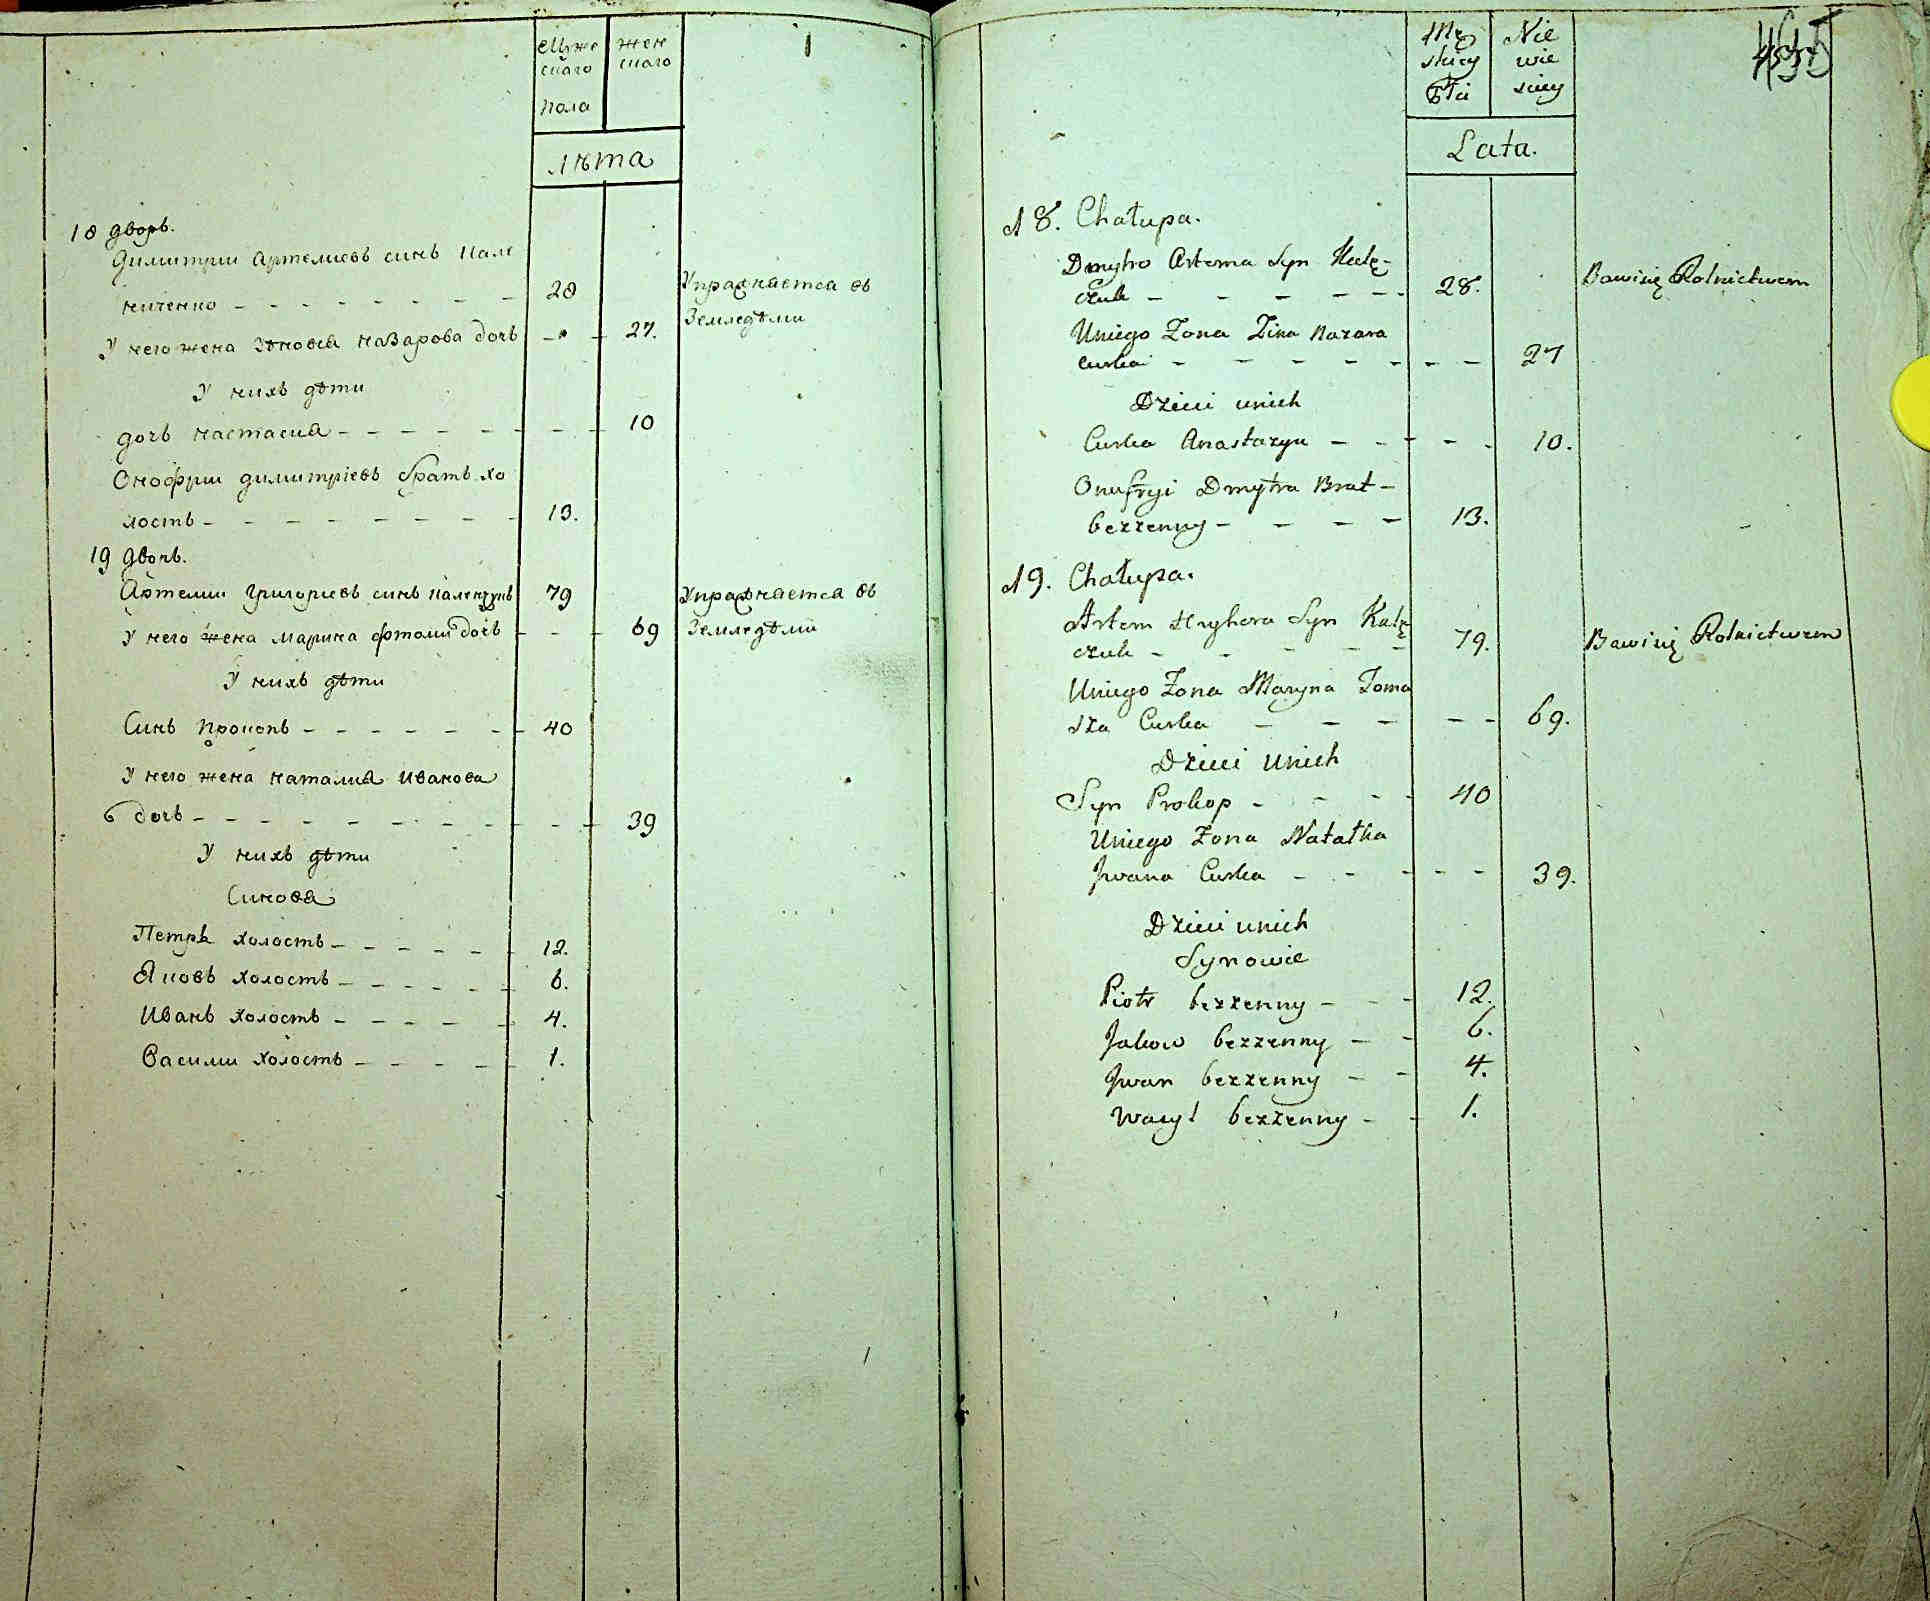 Мужескаго пола
женскаго
лѣта
18 дворъ.
Димитрии Артемиевъ синъ Кале
ниченко - - - - - - - 28 Упражняется въ
У него жена Зѣновия Назарова дочъ - - 27. Земледѣлии
У нихъ дѣти
дочъ Настасия - - - - - - - 10
Онофрии Димитриевъ братъ хо
лостъ - - - - - - - - 13.
19 дворъ.
Артемии Григориевъ синъ 79 Упражняется въ
У него жена Марина дочъ - - - 69 Земледѣлии
У нихъ дѣти
Синъ Прокопъ - - - - - - 40
У него жена Наталия Иванова
дочъ - - - - - - - - - - 39
У нихъ дѣти
Синовя
Петръ холостъ - - - - - 12.
Яковъ холостъ - - - - - 6.
Иванъ холостъ - - - - - 4.
Василии холостъ - - - - - 1.
Mę
skiey
Płci
Nie
wie
sciey
Lata.
18. Chałupa.
Dmytro Artema Syn Kalę-
czuk - - - - - - 28. Bawi się Rolnictwem
Uniego Zona Zina Nazara
Curka - - - - - - - 27
Dzieci unich
Curka Anastazya - - - - - 10.
Onufryi Dmytra Brat -
bezzenny - - - - 13.
19. Chałupa.
Artem Hryhora Syn Kalę
czuk - - - - - 79. Bawi się Rolnictwem
Uniego Zona Maryna Toma
sza Curka - - - - - 69.
Dzieci Unich
Syn Prokop - - - - 40
Uniego Zona Natałka
Jwana Curka - - - - - 39.
Dzieci unich
Synowie
Piotr bezzenny - - - 12.
Jakow bezzenny - - 6.
Jwan bezzenny - - 4.
Wasyl bezzenny - - 1.